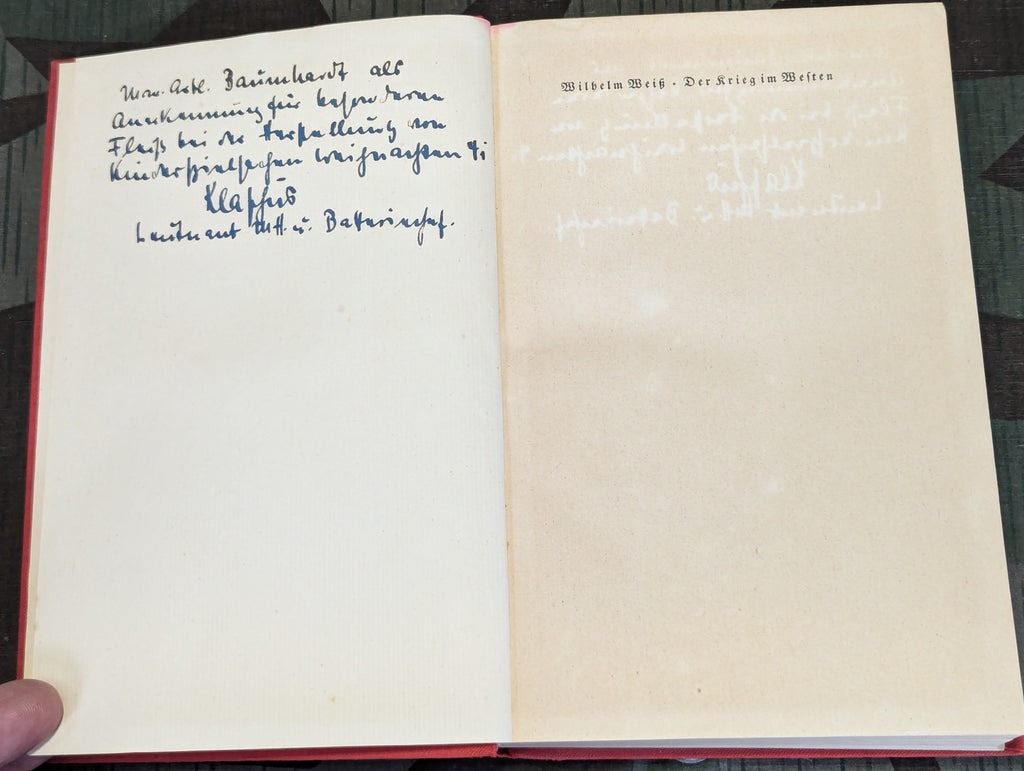 Mar. Artl. Baumhardt als
Anerkennung für besonderen
Fleiß bei der Herstellung von
Kinderspielsachen Weihnachten 41
Leutnant MA u. Batteriechef.
Wilhelm Weiß · Der Krieg im Westen